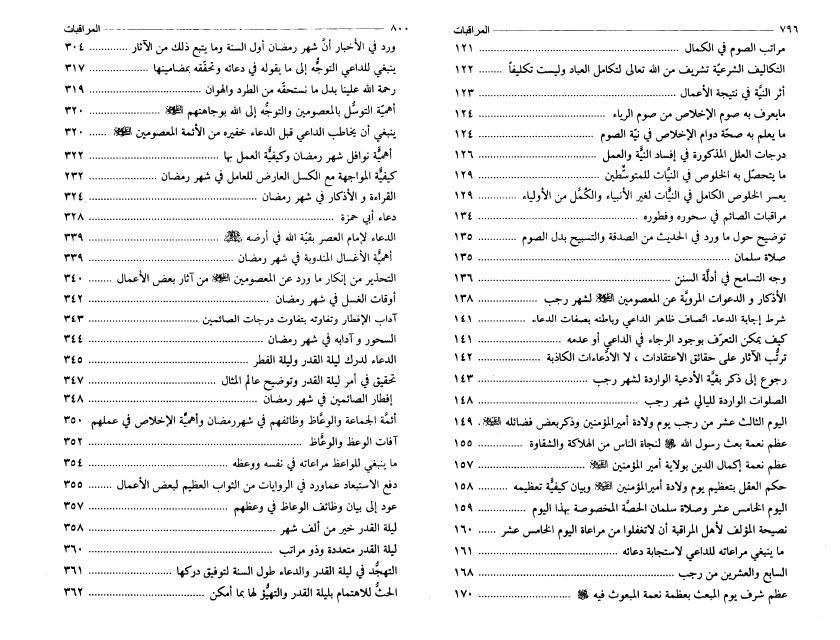 ٧٩٦ المراقبات
مراتب الصوم في الكمال ١٢١
التكاليف الشرعيّة تشريف من الله تعالى لتكامل العباد وليست تكليفاً ١٢٢
أثر النيّة في نتيجة الأعمال ١٢٣
مايعرف به صوم الإخلاص من صوم الرياء ١٢٤
ما يعلم به صحّة دوام الإخلاص في نيّة الصوم ١٢٤
درجات العلل المذكورة في إفساد النيّة والعمل ١٢٦
ما يتحصل به الخلوص في النيّات للمتوسطين ١٢٩
يعسر الخلوص الكامل في النيّات لغير الأنبياء والكُمَّل من الأولياء ١٢٩
مراقبات الصائم في سحوره وفطوره ١٣٤
توضيح حول ما ورد في الحديث من الصدقة والتسبيح بدل الصوم ١٣٥
صلاة سلمان ١٣٥
وجه التسامح في أدلّة السنن ١٣٦
الأذكار و الدعوات المرويّة عن المعصومين لشهر رجب ١٣٨
شرط إجابة الدعاء اتّصاف ظاهر الداعي وباطنه بصفات الدعاء ١٤١
كيف يمكن التعرّف بوجود الرجاء في الداعي أو عدمه ١٤١
ترتُّب الآثار على حقائق الاعتقادات ، لا الادّعاءات الكاذبة ١٤٢
رجوع إلى ذكر بقيّة الأدعية الواردة لشهر رجب ١٤٣
الصلوات الواردة لليالي شهر رجب ١٤٨
اليوم الثالث عشر من رجب يوم ولادة أميرالمؤمنين وذكربعض فضائله ١٤٩
عظم نعمة بعث رسول الله لنجاة الناس من الهلاكة والشقاوة ١٥٥
عظم نعمة إكمال الدين بولاية أمير المؤمنين ١٥٧
حكم العقل بتعظيم يوم ولادة أميرالمؤمنين وبيان كيفيّة تعظيمه ١٥٨
اليوم الخامس عشر وصلاة سلمان الحصّة المخصوصة بهذا اليوم ١٥٩
نصيحة المؤلف لأهل المراقبة أن لاتغفلوا من مراعاة اليوم الخامس عشر ١٦٠
ما ينبغي مراعاته للداعي لاستجابة دعائه ١٦١
السابع والعشرين من رجب ١٦٨
عظم شرف يوم المبعث بعظمة نعمة المبعوث فيه ١٧٠
٨٠٠ المراقبات
ورد في الأخبار أنَّ شهر رمضان أول السنة وما يتبع ذلك من الآثار ٣٠٤
ينبغي للداعي التوجُّه إلى ما يقوله في دعائه وتحقّقه بمضامينها ٣١٧
رحمة الله علينا بدل ما نستحقّه من الطرد والهوان ٣١٩
أهميّة التوسُّل بالمعصومين والتوجُّه إلى الله بوجاهتهم ٣٢٠
ينبغي أن يخاطب الداعي قبل الدعاء خفيره من الأئمة المعصومين ٣٢٠
أهميَّة نوافل شهر رمضان وكيفيَّة العمل بها ٣٢٢
كيفيَّة المواجهة مع الكسل العارض للعامل في شهر رمضان ٢٣٢
القراءة و الأذكار في شهر رمضان ٣٢٤
دعاء أبي حمزة ٣٢٨
الدعاء لإمام العصر بقيّة الله في أرضه ٣٣٩
أهميَّة الأغسال المندوبة في شهر رمضان ٣٣٩
التحذير من إنكار ما ورد عن المعصومين من آثار بعض الأعمال ٣٤٠
أوقات الغسل في شهر رمضان ٣٤٢
آداب الإفطار وتفاوته بتفاوت درجات الصائمين ٣٤٣
السحور و آدابه في شهر رمضان ٣٤٤
الدعاء لدرك ليلة القدر وليلة الفطر ٣٤٥
تحقيق في أمر ليلة القدر وتوضيح عالم المثال ٣٤٧
إفطار الصائمين في شهر رمضان ٣٤٨
أئمَّة الجماعة والوعَّاظ وظائفهم في شهررمضان وأهميّة الإخلاص في عملهم ٣٥٠
آفات الوعظ والوعَّاظ ٣٥٢
ما ينبغي للواعظ مراعاته في نفسه ووعظه ٣٥٤
دفع الاستبعاد عماورد في الروايات من الثواب العظيم لبعض الأعمال ٣٥٥
عود إلى بيان وظائف الوعاظ في وعظهم ٣٥٧
ليلة القدر خير من ألف شهر ٣٥٨
ليلة القدر متعددة وذو مراتب ٣٦٠
التهجُّد في ليلة القدر والدعاء طول السنة لتوفيق دركها ٣٦١
الحثُّ للاهتمام بليلة القدر والتهيُّؤ لها بما أمكن ٣٦٢